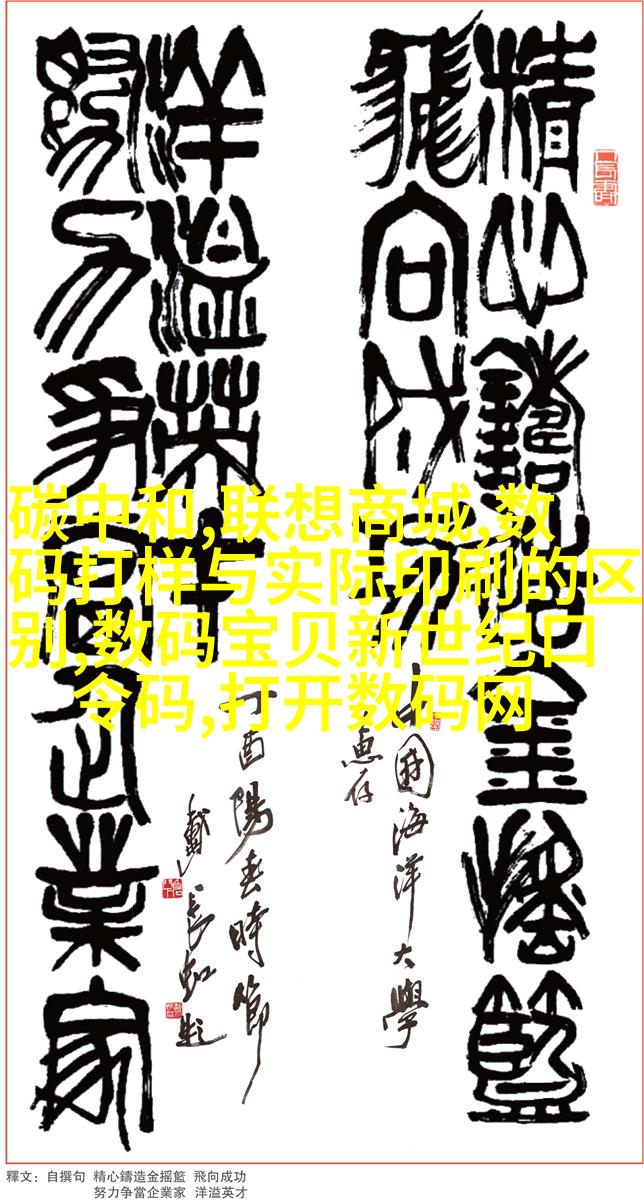 精心鑄造金搖籃
飛向成功
中國海洋大學
惠存
努力爭當企業家
洋溢英才
丁酉陽春時節
戴長虹題
碳中和,联想商城,数
码打样与实际印刷的区
别,数码宝贝新世纪口
令码,打开数码网
釋文：自撰句 精心鑄造金摇籃 飛向成功
努力争當企業家 洋溢英才